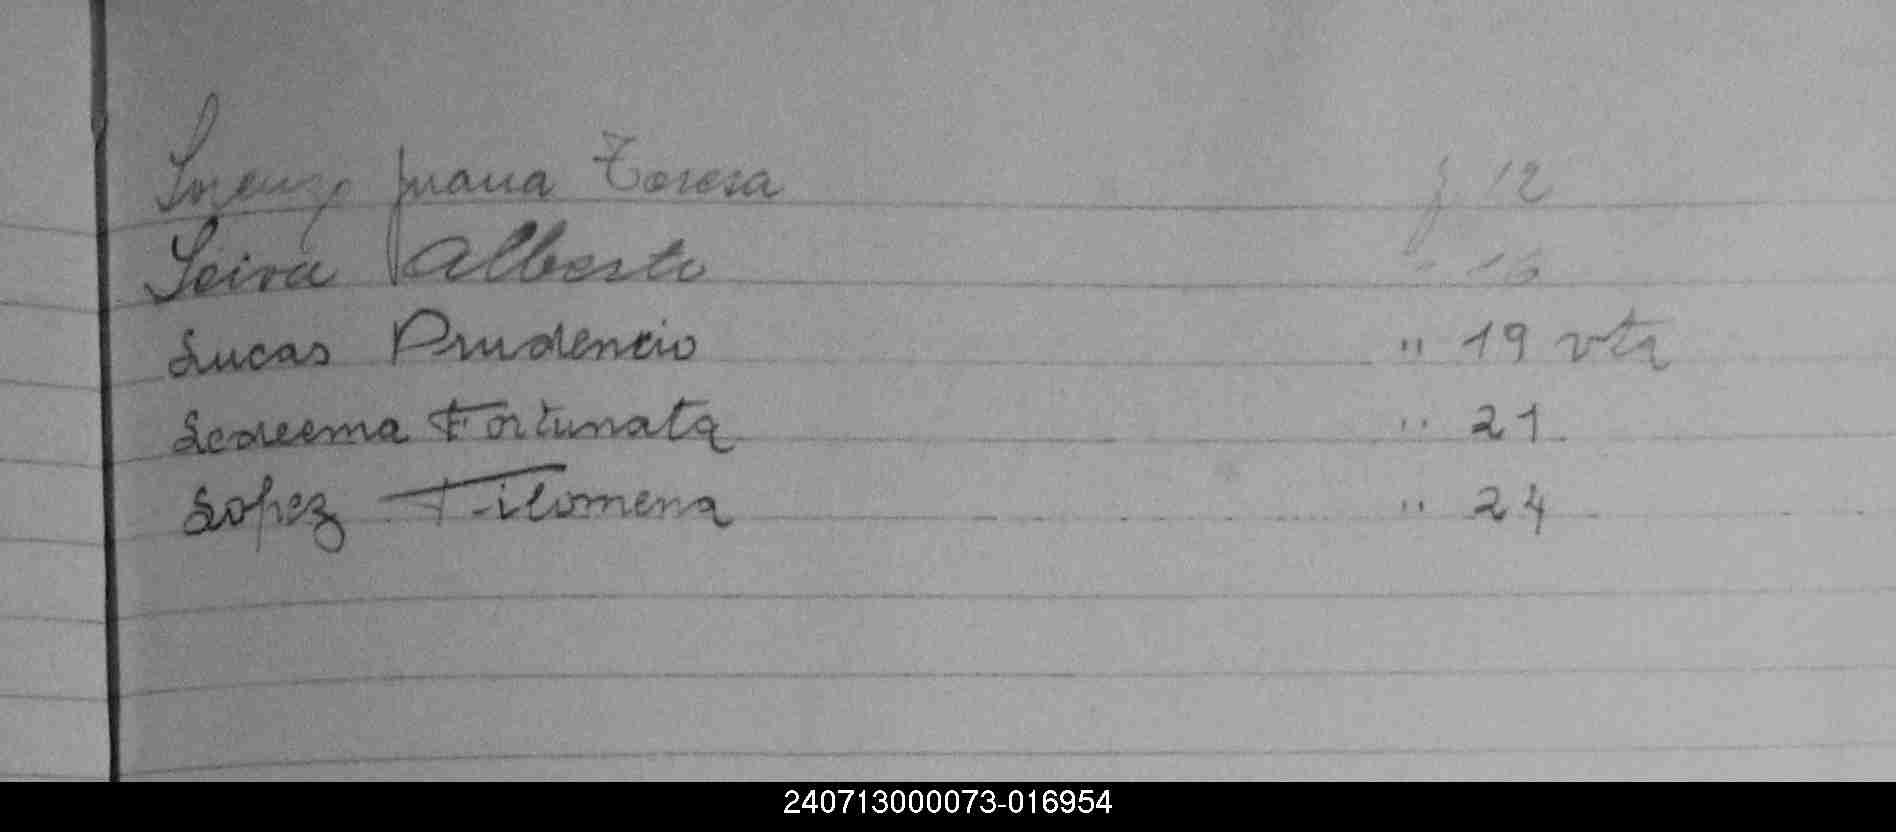 Lorenzo Juana Teresa f 12
Leiva Alberto " 16
Lucas Prudencio " 19 vta
Ledeema Fortunata " 21
Lopez Filomena " 24
240713000073-016954